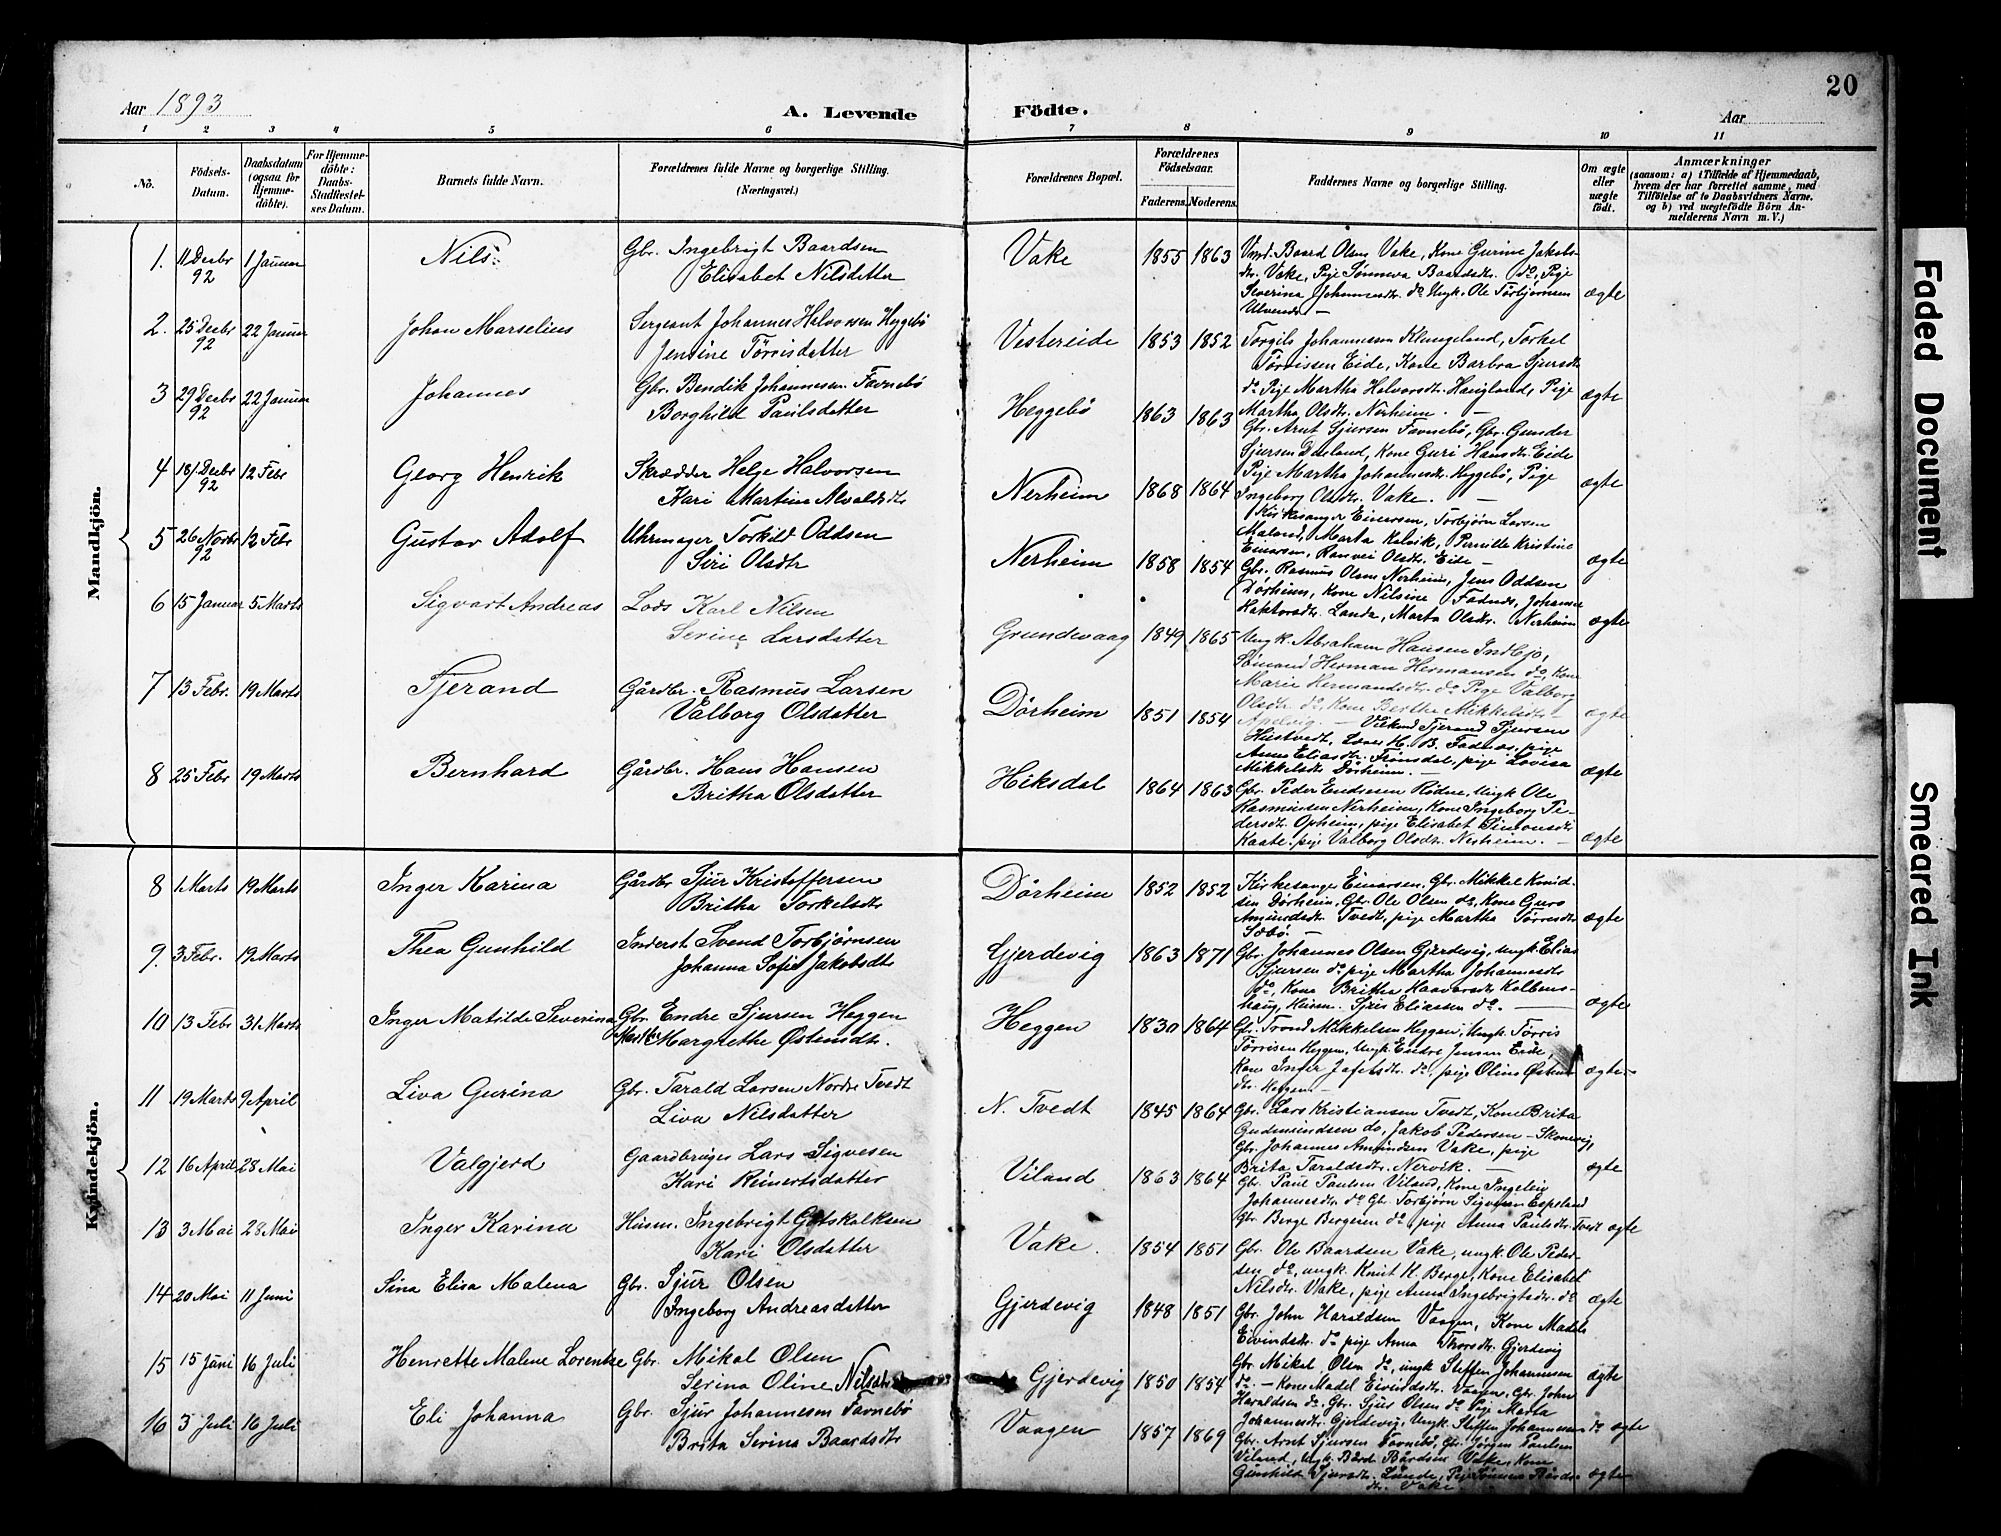 20
Aar 1893
A. Levende Födte.
Aar
1 2 3 4 5 6 7 8 9 10 11
No.
Födsels-Datum.
Daabsdatum (ogsaa for Hjemme-döbte).
For Hjemme-döbte: Daabs-Stadfæstel-ses Datum.
Barnets fulde Navn.
Forældrenes fulde Navne og borgerlige Stilling. (Næringsvei.)
Forældrenes Bopæl.
Forældrenes Födselsaar.
Faderens. Moderens.
Faddernes Navne og borgerlige Stilling.
Om ægte eller uægte födt.
Anmærkninger
(saasom: a) i Tilfælde af Hjemmedaab,
hvem der har forrettet samme, med
Tilföielse af to Daabsvidners Navne.
og b) ved uægtefödte Börn An-
melderens Navn m. V.)
Mandkjön.
1. 11 Decbr 92 1 Januar Nils Gbr. Ingebrigt Baardsen
Elisabet Nilsdatter
Vake 1855 1863 Baard Olsen Vake, Kone Gurine Jakobs-
dtr. Vake, Pige Sønneva Baardsdtr. do, Pige
Severina Johannesdtr. do Ungk. Ole Torbjørnsen
ægte
2. 25 Decbr 92 22 Januar Johan Marselius Sergeant Johannes Halvorsen Heggebö
Jensine Törrisdatter
Vestereide 1853 1852 Torgils Johannesen Klungeland, Torkel
Törrissen Eide, Kone Barbra Sjursdtr
do Pige Martha Halvorsdtr. Haugland, Pige
Martha Olsdtr. Nerheim.
ægte
3 29 Decbr 92 22 Januar Johannes Gbr. Bendik Johannesen Favnebö
Borghild Paulsdatter
Heggebö 1863 1863 Gbr. Arnt Sjursen Favnebö, Gbr. Gunder
Sjursen Daland, Kone Guri Hansdtr Eide
Pige Martha Johannesdtr. Heggebö, Pige
Ingeborg Olsdtr. Vake.
ægte
4 18 Decbr 92 12 Febr Georg Henrik Skrædder Helge Halvorsen
Kari Martina
Nerheim 1868 1864 Kirkesanger Einersen, Torbjørn Larsen
Marta Kalvik, Pernille Kristine
Einarsen, Ranvei Olsdtr. Eide
ægte
5 26 Novbr 92 12 Febr Gustav Adolf Uhrmager Torkild Oddsen
Siri Olsdtr
Nerheim 1858 1854 Gbr. Rasmus Olsen Nerheim, Jens Oddsen
Dörheim, Kone Nilsine Johanna
Landa, Marta Olsdtr. Nerheim
ægte
6 15 Januar 5 Marts Sigvart Andreas Lods Karl Nilsen
Serine Larsdatter
Grundevaag 1849 1865 Ungk. Abraham Hansen
Sömand Herman Hermansen do, Kone
Marie Hermandsdtr. do Pige Valborg
Olsdtr. do Kone Berthe Mikkelsdtr
ægte
7 13 Febr. 19 Marts Tjerand Gårdbr. Rasmus Larsen
Valborg Olsdatter
Dörheim 1851 1854 Tjerand Sjursen
Hustvedt, H. B. Fadnes, pige
Anna Eliasdtr. pige Lovisa
Mikkelsdtr Dörheim.
ægte
8 25 Febr 19 Marts Bernhard Gårdbr. Hans Hansen
Britha Olsdatter
Hiksdal 1864 1863 Gbr. Peder Endresen Rödne, Ungk Ole
Rasmussen Nerheim, Kone Ingeborg Pe-
dersdtr. Opheim, pige Elisabet Simonsdtr
Kaate. pige Valborg Olsdtr. Nerheim.
ægte
Kvindekjön.
8 1 Marts 19 Marts Inger Karina Gårdbr Sjur Kristoffersen
Britha Torkelsdtr
Dörheim 1852 1852 Kirkesanger Einarsen. Gbr. Mikkel Knud-
sen Dörheim, Gbr. Ole Olsen do, Kone Guro
Amundsdtr. Tvedt, pige Martha Törresdtr
Sæbö.
ægte
9. 3 Febr. 19 Marts Thea Gunhild Inderst Svend Torbjørnsen
Johanna Sofie Jakobsdtr
Gjerdevig 1863 1871 Gbr. Johannes Olsen Gjerdevig, ungk. Elias
Sjursen do, pige Martha Johannesdtr
do, Kone Britha Haavarsdtr Kolbens-
haug, Husm. Sjur Eliassen do.
ægte
10 13 Febr 31 Marts Inger Matilde Severina Gbr. Endre Sjursen Heggen
Martha Margrethe Østensdtr.
Heggen 1830 1864 Gbr. Trond Mikkelsen Heggen, Ungk. Törris
Törrisen Heggen, Ungk. Endre Jensen Eide,
Kone Inger Jafetsdtr. do, pige Olina Östens-
dtr. Heggen.
ægte
11 19 Marts 9 April Liva Gurina Gbr. Tarald Larsen Nordre Tvedt
Liva Nilsdatter
N. Tvedt 1845 1864 Gbr. Lars Kristiansen Tvedt, Kone Brita
Gudmundsen do, Jakob Pedersen - Skonevig,
Gbr. Johannes Amundsen Vake, pige
Brita Taraldsdtr. Nervik.
ægte
12 16 April 28 Mai Valgjerd Gaardbruger Lars Sigvesen
Kari Reinertsdatter
Viland 1863 1864 Gbr. Paul Paulsen Viland, Kone Ingeleiv
Johannesdtr. do Gbr. Torbjørn Espeland
Gbr Berge Bergesen do, pige Anna Paulsdtr. Tvedt ægte
13 3 Mai 28 Mai Inger Karina Husm. Ingebrigt Gotskalksen
Kari Olsdatter
Vake. 1854 1851 Gbr. Ole Baardsen Vake, ungk. Ole Peder-
sen do, ungk. Knut K. Berge, Kone Elisabet
Nilsdtr. Vake, pige Anna Ingebrigtsdtr. do
ægte
14 20 Mai 11 Juni Sina Elisa Malena Gbr. Sjur Olsen
Ingeborg Andreasdatter
Gjerdevig 1848 1851 Gbr. John Haraldsen Vaagen, Kone Madel
Eivindsdtr. do pige Anna Thorsdtr. Gjerdevig
Gbr. Mikal Olsen do, ungk Steffen Johannesen
do.
ægte
15 15 Juni 16 Juli Henrette Malene Lorentze Gbr. Mikal Olsen
Serina Oline Nilsdtr
Gjerdevig 1850 1854 Kone Madel Eivindsdtr. Vaagen, Gbr. John
Haraldsen do. Gbr. Sjur Olsen do Pige Marta
Johannesdtr. Gjerdevig, Ungk. Steffen Johannesen do ægte
16 3 Juli 16 Juli Eli Johanna Gbr. Sjur Johannesen Favnebö
Brita Serina Baardsdtr
Vaagen 1857 1869 Gbr. Arnt Sjursen Favnebö, Gbr. Jörgen Paulsen
Viland, ungk Bård Bårdsen Vake, Kone
Gunhild Sjursdtr. Lunde, Pige Sönneva Bårds-
dtr. Vake.
ægte
Faded Document
Smeared Ink